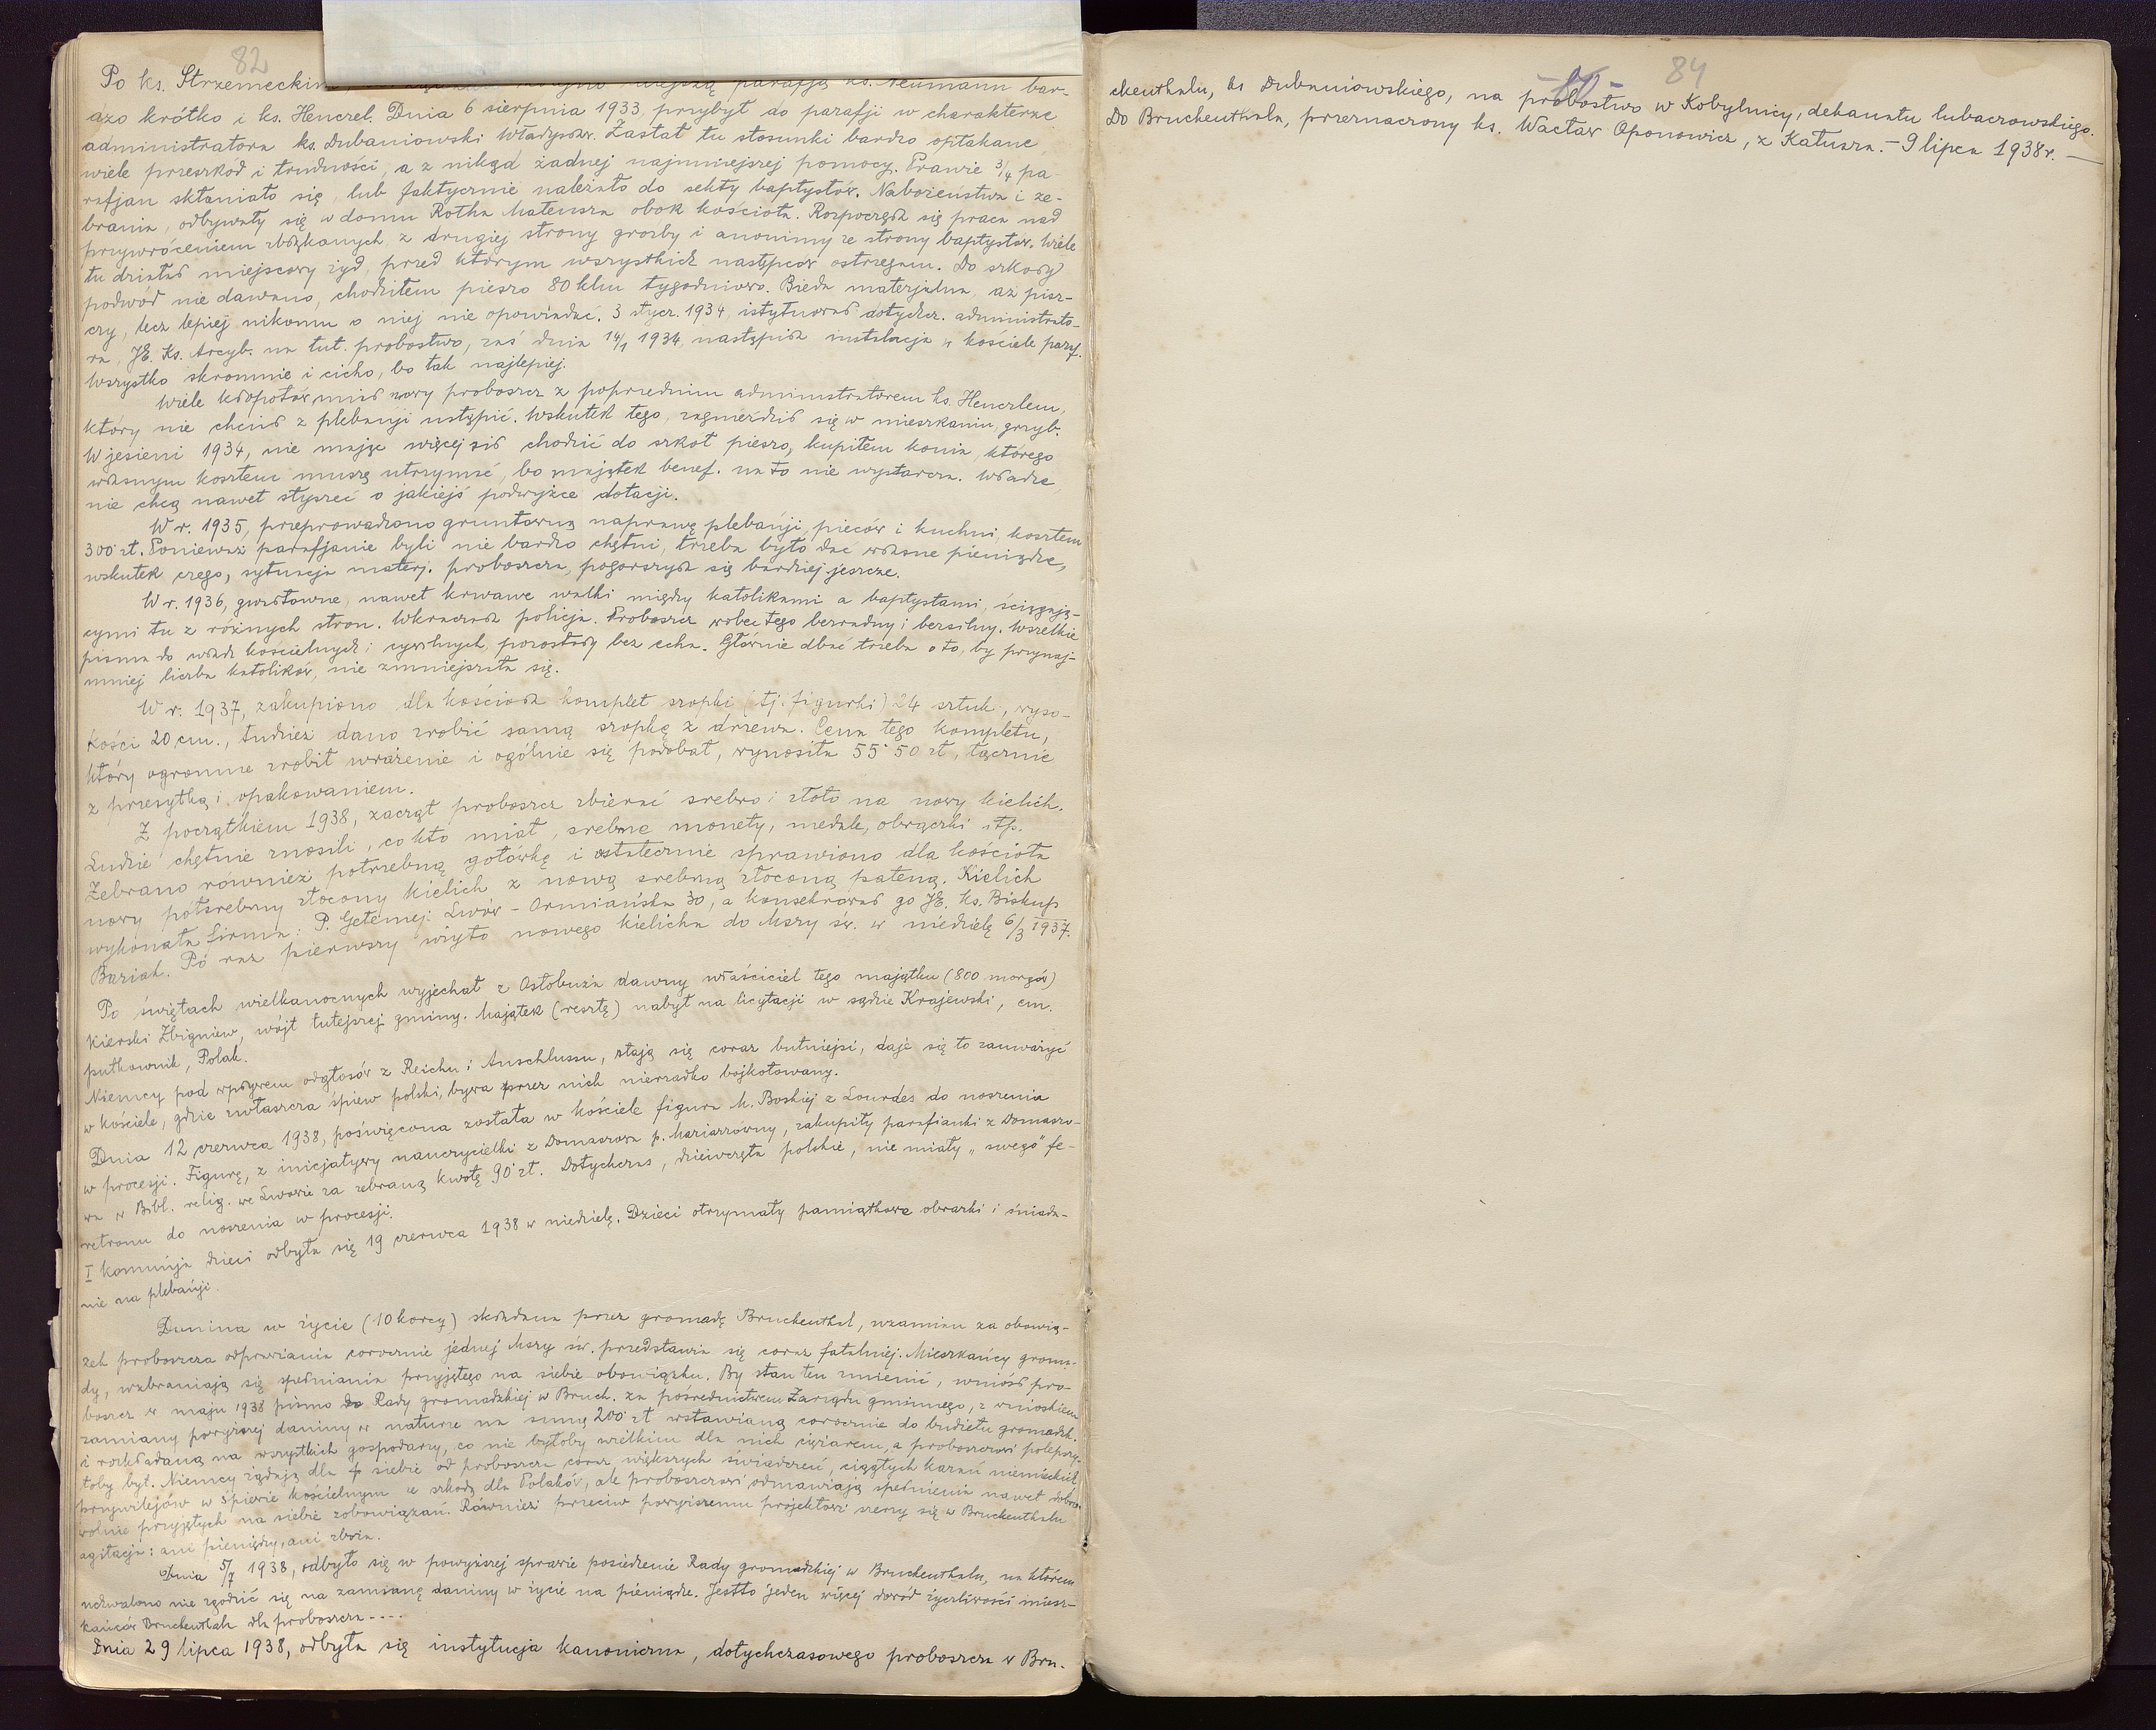 82
Po ks. Strzemeckim parafją ks. Neumann bar-
dzo krótko i ks. Henzel. Dnia 6 sierpnia 1933, przybył do parafji w charakterze
administratora ks. Dubaniowski Władysław. Zastał tu stosunki bardzo opłakane,
wiele przeszkód i trudności, a z nikąd żadnej najmniejszej pomocy. Prawie 3/4 pa-
rafjan skłaniało się, lub faktycznie należało do sekty baptystów. Nabożeństwa i ze-
brania, odbywały się w domu Rotha Mateusza obok kościoła. Rozpoczęła się praca nad
przywróceniem zbłąkanych, z drugiej strony groźby i anonimy ze strony baptystów. Wiele
tu działał miejscowy żyd, przed którym wszystkich następców ostrzegam. Do szkoły
podwód nie dawano, chodziłem pieszo 80 klm tygodniowo. Bieda materjalna, aż pisz-
czy, lecz lepiej nikomu o niej nie opowiadać. 3 stycz. 1934, istytuował dotychcz. administrato-
ra, JE. Ks. Arcyb. na tut. probostwo, zaś dnia 14/1 1934, nastąpiła instalacja w kościele paraf.
Wszystko skromnie i cicho, bo tak najlepiej.
Wiele kłopotów miał nowy proboszcz z poprzednim administratorem ks. Henzlem,
który nie chciał z plebanji ustąpić. Wskutek tego, zagnieździł się w mieszkaniu, grzyb.
W jesieni 1934, nie mając więcej sił chodzić do szkół pieszo, kupiłem konia, którego
własnym kosztem muszę utrzymać, bo majątek benef. na to nie wystarcza. Władze
nie chcą nawet słyszeć o jakiejś podwyżce dotacji.
W r. 1935, przeprowadzono gruntowną naprawę plebanji, pieców i kuchni, kosztem
300 zł. Ponieważ parafjanie byli nie bardzo chętni, trzeba było dać własne pieniądze,
wskutek czego, sytuacja materj. proboszcza, pogorszyła się bardziej jeszcze.
W r. 1936, gwałtowne, nawet krwawe walki między katolikami a baptystami, ściągają-
cymi tu z różnych stron. Wkraczała policja. Proboszcz wobec tego bezradny i bezsilny. Wszelkie
pisma do władz kościelnych i cywilnych, pozostały bez echa. Głównie dbać trzeba o to, by przynaj-
mniej liczba katolików, nie zmniejszała się.
W r. 1937, zakupiono dla kościoła komplet szopki (tj. figurki) 24 sztuk, wyso-
kości 20 cm., tudzież dano zrobić samą szopkę z drzewa. Cena tego kompletu,
który ogromne zrobił wrażenie i ogólnie się podobał, wynosiła 55.50 zł, łącznie
z przesyłką i opakowaniem.
Z początkiem 1938, zaczął proboszcz zbierać srebro i złoto na nowy kielich.
Ludzie chętnie znosili, co kto miał, srebrne monety, medale, obrączki itp.
Zebrano również potrzebną gotówkę i ostatecznie sprawiono dla kościoła
nowy półsrebrny złocony kielich z nową srebrną złoconą pateną. Kielich
wykonała firma: P. Getemej: Lwów - Ormiańska 30, a konsekrował go JE. ks. Biskup
Baziak. Po raz pierwszy użyto nowego kielicha do Mszy św. w niedzielę 6/3 1937.
Po świętach wielkanocnych wyjechał z Ostobuża dawny właściciel tego majątku (800 morgów)
Kierski Zbigniew, wójt tutejszej gminy. Majątek (resztę) nabył na licytacji w sądzie Krajewski, em.
pułkownik, Polak.
Niemcy pod wpływem odgłosów z Reichu i Anschlussu, stają się coraz butniejsi, daje się to zauważyć
w kościele, gdzie zwłaszcza śpiew polski, bywa przez nich nierzadko bojkotowany.
Dnia 12 czerwca 1938, poświęcona została w kościele figura M. Boskiej z Lourdes do noszenia
w procesji. Figurę, z inicjatywy nauczycielki z Domaszowa p. Mariarzówny, zakupiły parafianki z Domaszo-
wa w Bibl. relig. we Lwowie za zebraną kwotę 90 zł. Dotychczas, dziewczęta polskie, nie miały „swego" fe-
retronu do noszenia w procesji.
I komunja dzieci odbyła się 19 czerwca 1938 w niedzielę. Dzieci otrzymały pamiątkowe obrazki i śniada-
nie na plebanji.
Danina w życie (10 korcy) składana przez gromadę Bruckenthal, wzamian za obowią-
zek proboszcza odprawiania corocznie jednej Mszy św. przedstawia się coraz fatalniej. Mieszkańcy groma-
dy, wzbraniają się spełniania przyjętego na siebie obowiązku. By stan ten zmienić, wniósł pro-
boszcz w maju 1938 pismo do Rady gromadzkiej w Bruck. za pośrednictwem Zarządu gminnego, z wnioskiem
zamiany powyższej daniny w naturze na sumę 200 zł wstawianą corocznie do budżetu gromadzk.
i rozkładaną na wszystkich gospodarzy, co nie byłoby wielkim dla nich ciężarem, a proboszczowi polepszy-
łoby byt. Niemcy żądają dla siebie od proboszcza coraz większych świadczeń, ciągłych kazań niemieckich,
przywilejów w śpiewie kościelnym ze szkodą dla Polaków, ale proboszczowi odmawiają spełnienia nawet dobro-
wolnie przyjętych na siebie zobowiązań. Również przeciw powyższemu projektowi szerzy się w Bruckenthalu
agitacja: ani pieniędzy, ani zboża.
Dnia 5/7 1938, odbyło się w powyższej sprawie posiedzenie Rady gromadzkiej w Bruckenthalu, na którem
uchwalono nie zgodzić się na zamianę daniny w życie na pieniądze. Jestto jeden więcej dowód życzliwości miesz-
kańców Bruckenthalu dla proboszcza ----
Dnia 29 lipca 1938, odbyła się instytucja kanoniczna, dotychczasowego proboszcza w Bru-
84
ckenthalu, ks Dubaniowskiego, na probostwo w Kobylnicy, dekanatu lubaczowskiego.
Do Bruckenthala, przeznaczony ks. Wacław Oponowicz, z Kałusza. - 9 lipca 1938 r. —